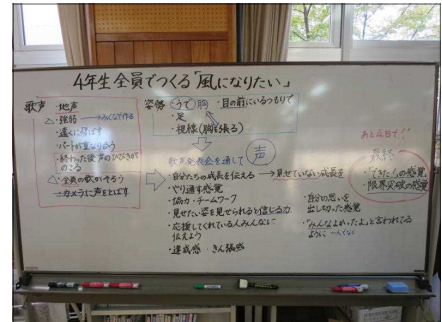 4年生全員でつくる「風になりたい」
歌声 地声
△・強弱 →みんなで作る
・遠くに飛ばす
・パートが重なり合う
・終わった後 声のひびきが
のこる
△・全員の歌がそろう
→カメラに声をとばす
姿勢 うで 胸 ・目の前にいるつもりで
・足
・視線(胸を張る)
歌声発表会を通して 声
・自分たちの成長を伝える →見せていない成長を
・やり通す感覚
・協力・チームワーク
・見せたい姿を見せられると信じる力
・応援してくれている人みんなに
伝えよう
・達成感 ・きん張感
あと4日で!!
最終
・「できた!」の感覚
・限界突破の感覚
・自分の思いを
出し切った感覚
・「みんなよかったよ」と言われている
ように